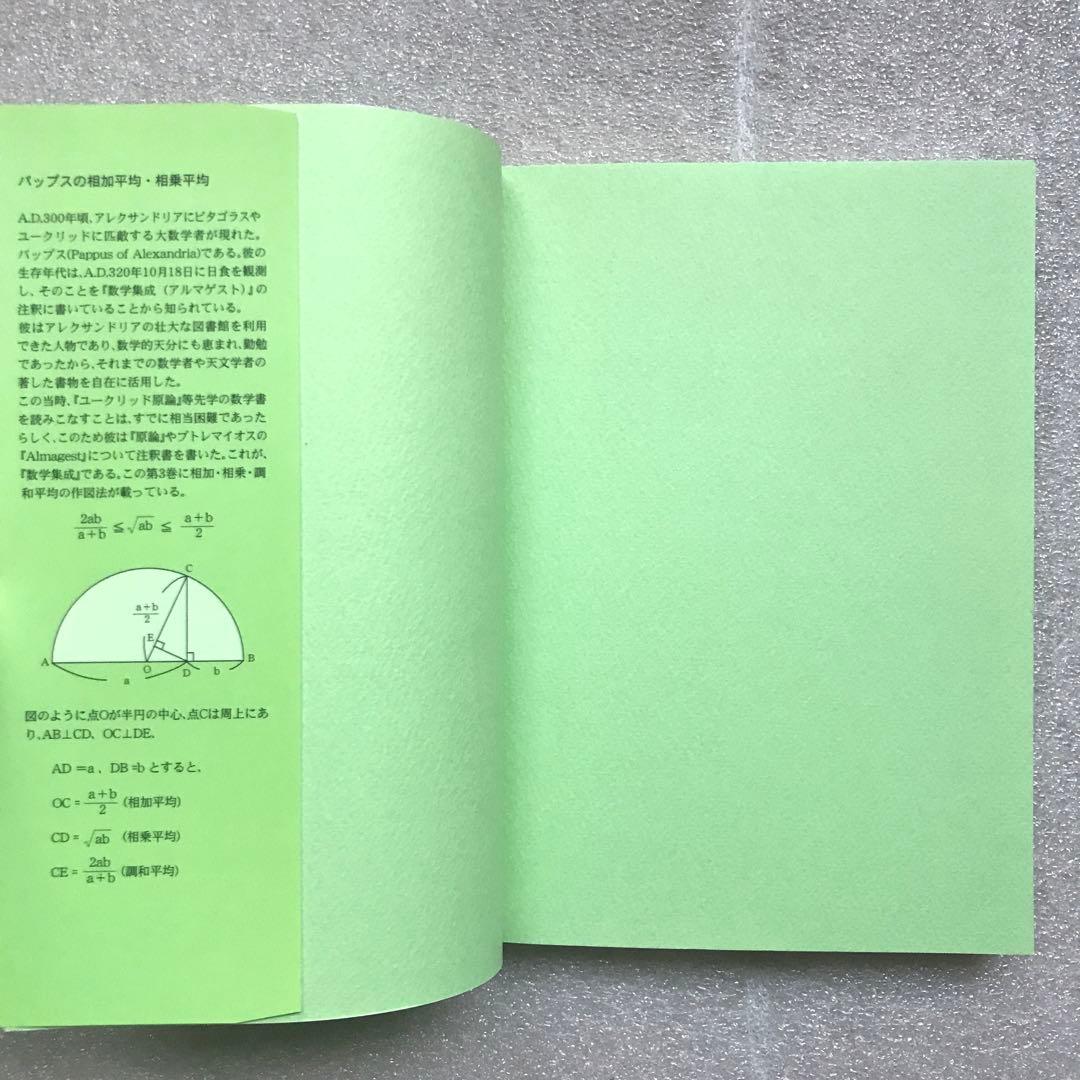 パップスの相加平均・相乗平均
A.D.300年頃、アレクサンドリアにピタゴラスや
ユークリッドに匹敵する大数学者が現れた。
パップス(Pappus of Alexandria)である。彼の
生存年代は、A.D.320年10月18日に日食を観測
し、そのことを『数学集成（アルマゲスト）』の
注釈に書いていることから知られている。
彼はアレクサンドリアの壮大な図書館を利用
できた人物であり、数学的天分にも恵まれ、勤勉
であったから、それまでの数学者や天文学者の
著した書物を自在に活用した。
この当時、『ユークリッド原論』等先学の数学書
を読みこなすことは、すでに相当困難であった
らしく、このため彼は『原論』やプトレマイオスの
『Almagest』について注釈書を書いた。これが、
『数学集成』である。この第3巻に相加・相乗・調
和平均の作図法が載っている。
2ab/a+b ≦ √ab ≦ a+b/2
C
a+b/2
E
A O D B
a b
図のように点Oが半円の中心、点Cは周上にあ
り、AB⊥CD、OC⊥DE、
AD =a 、DB =b とすると、
OC = a+b/2 (相加平均)
CD = √ab (相乗平均)
CE = 2ab/a+b (調和平均)